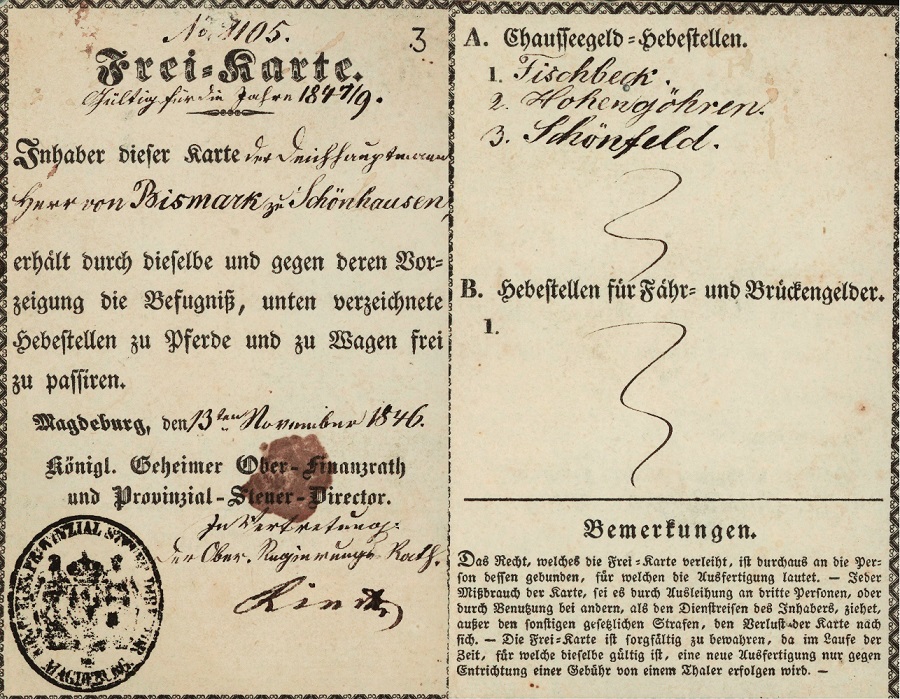 No. 1105.
3
Frei-Karte.
Gültig für die Jahre 1847/9.
Inhaber dieser Karte der Deichhauptmann
Herr von Bismark zu Schönhausen,
erhält durch dieselbe und gegen deren Vor-
zeigung die Befugniß, unten verzeichnete
Hebestellen zu Pferde und zu Wagen frei
zu passiren.
Magdeburg, den 13ten November 1846.
Königl. Geheimer Ober-Finanzrath
und Provinzial-Steuer-Director.
In Vertretung.
Der Ober-Regierungs-Rath.
PROVINZIAL
MAGDEBURG
A. Chausseegeld-Hebestellen.
1. Fischbeck.
2. Hohengöhren.
3. Schönfeld.
B. Hebestellen für Fähr- und Brückengelder.
1.
Bemerkungen.
Das Recht, welches die Frei-Karte verleiht, ist durchaus an die Per-
son dessen gebunden, für welchen die Ausfertigung lautet. — Jeder
Mißbrauch der Karte, sei es durch Ausleihung an dritte Personen, oder
durch Benutzung bei andern, als den Dienstreisen des Inhabers, ziehet,
außer den sonstigen gesetzlichen Strafen, den Verlust der Karte nach
sich. — Die Frei-Karte ist sorgfältig zu bewahren, da im Laufe der
Zeit, für welche dieselbe gültig ist, eine neue Ausfertigung nur gegen
Entrichtung einer Gebühr von einem Thaler erfolgen wird. —